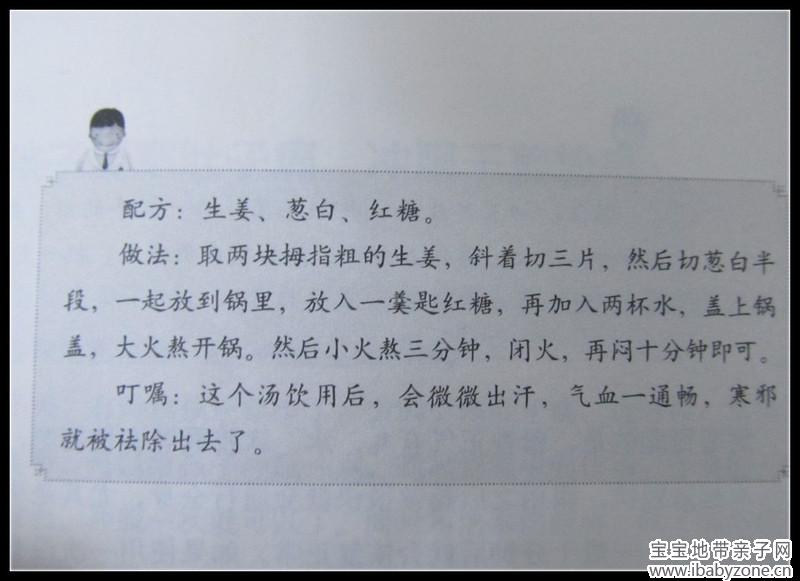 配方：生姜、葱白、红糖。
做法：取两块拇指粗的生姜，斜着切三片，然后切葱白半
段，一起放到锅里，放入一羹匙红糖，再加入两杯水，盖上锅
盖，大火熬开锅。然后小火熬三分钟，闭火，再闷十分钟即可。
叮嘱：这个汤饮用后，会微微出汗，气血一通畅，寒邪
就被祛除出去了。
宝宝地带亲子网
www.ibabyzone.cn